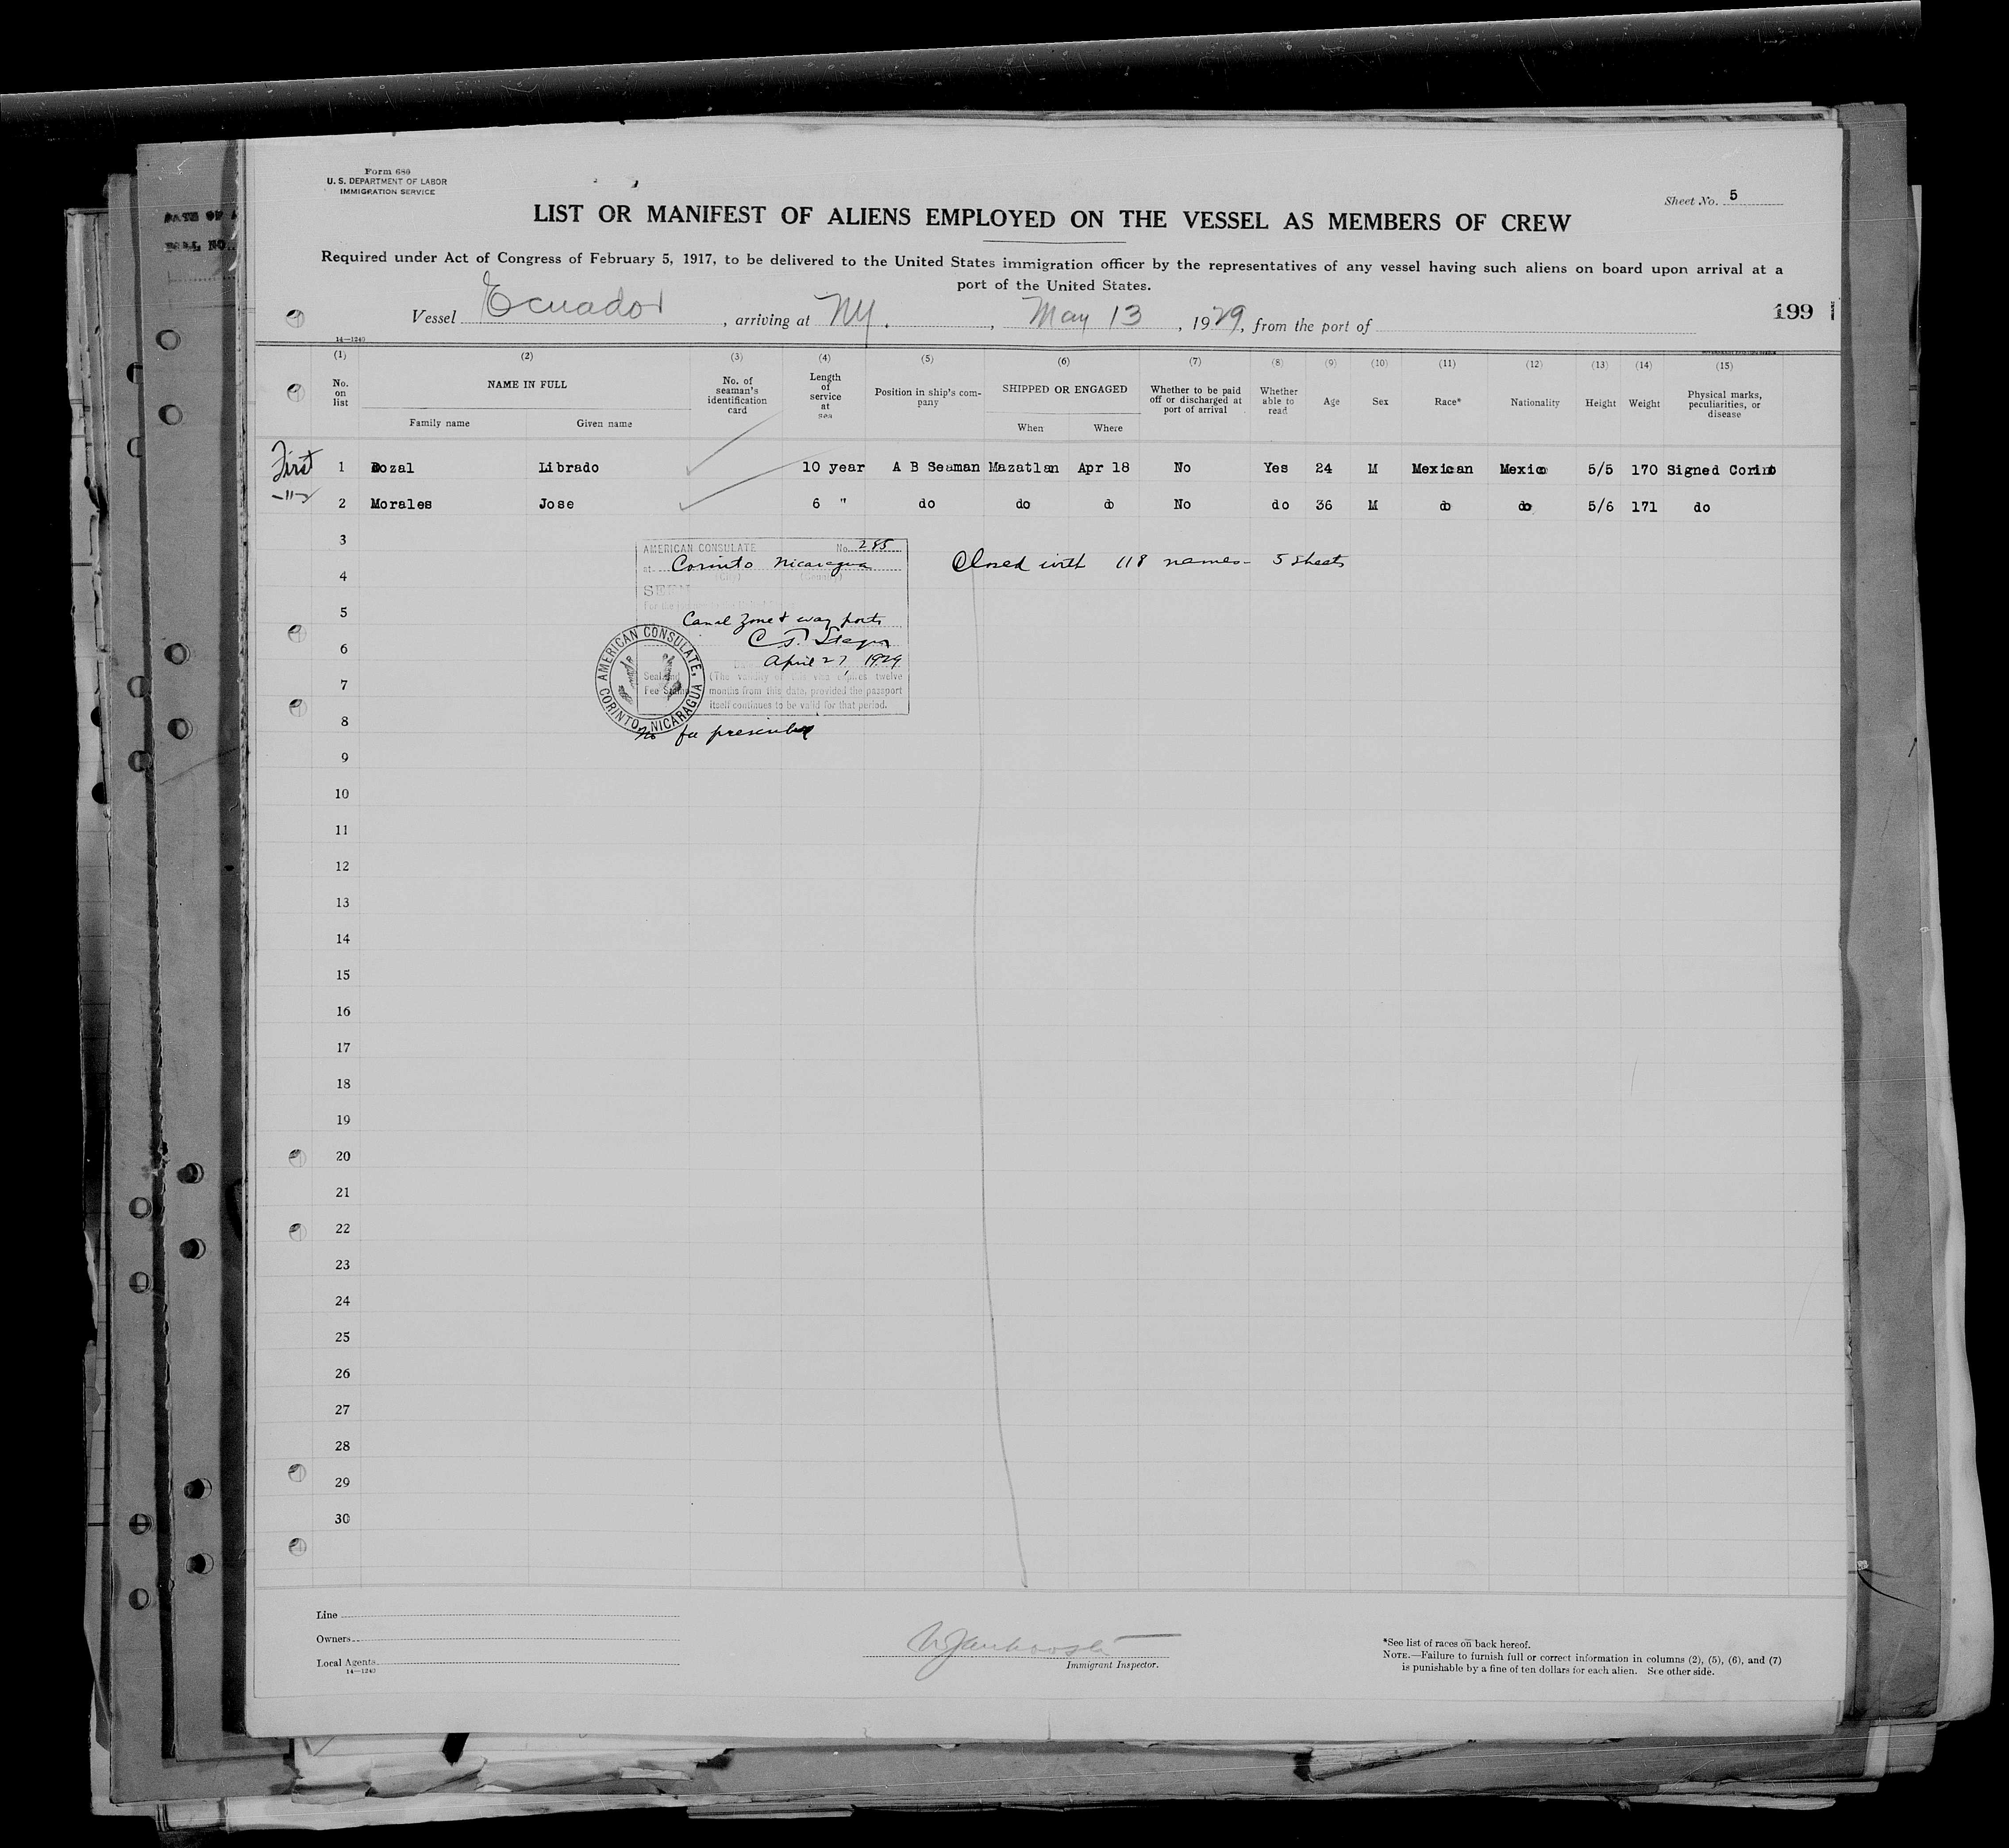 Form 680
U. S. DEPARTMENT OF LABOR
IMMIGRATION SERVICE
Sheet No. 5
LIST OR MANIFEST OF ALIENS EMPLOYED ON THE VESSEL AS MEMBERS OF CREW
Required under Act of Congress of February 5, 1917, to be delivered to the United States immigration officer by the representatives of any vessel having such aliens on board upon arrival at a
port of the United States.
Vessel Ecuador, arriving at NY., May 13, 1929, from the port of
199
14—1240
(1) (2) (3) (4) (5) (6) (7) (8) (9) (10) (11) (12) (13) (14) (15)
No. on list NAME IN FULL No. of seaman's identification card Length of service at sea Position in ship's company SHIPPED OR ENGAGED Whether to be paid off or discharged at port of arrival Whether able to read Age Sex Race* Nationality Height Weight Physical marks, peculiarities, or disease
Family name Given name When Where
First 1 Dozal Librado 10 year A B Seaman Mazatlan Apr 18 No Yes 24 M Mexican Mexico 5/5 170 Signed Corinto
-"- 2 Morales Jose 6 " do do do No do 36 M do do 5/6 171 do
3
AMERICAN CONSULATE No. 285
at Corinto Nicaragua
(City) (Country)
Closed with 118 names - 5 sheets
4
SEEN
For the
5
Canal Zone & way ports
6
April 27, 1929
AMERICAN CONSULATE, CORINTO, NICARAGUA
Seal and
Fee Stamp
(The validity of this visa expires twelve
months from this date, provided the passport
itself continues to be valid for that period.
7
8
No fee prescribed
9
10
11
12
13
14
15
16
17
18
19
20
21
22
23
24
25
26
27
28
29
30
Line
Owners
Local Agents
14—1240
Immigrant Inspector.
*See list of races on back hereof.
NOTE.—Failure to furnish full or correct information in columns (2), (5), (6), and (7)
is punishable by a fine of ten dollars for each alien. See other side.